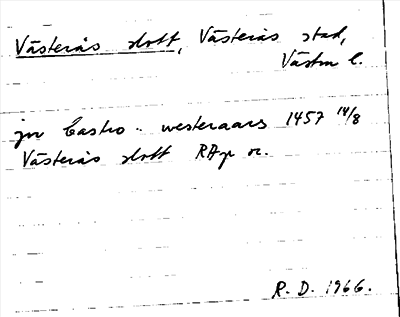 Västerås slott, Västerås stad,
Västm l.
jn Castro .. westeraars 1457 14/8
Västerås slott RAp or.
R. D. 1966.